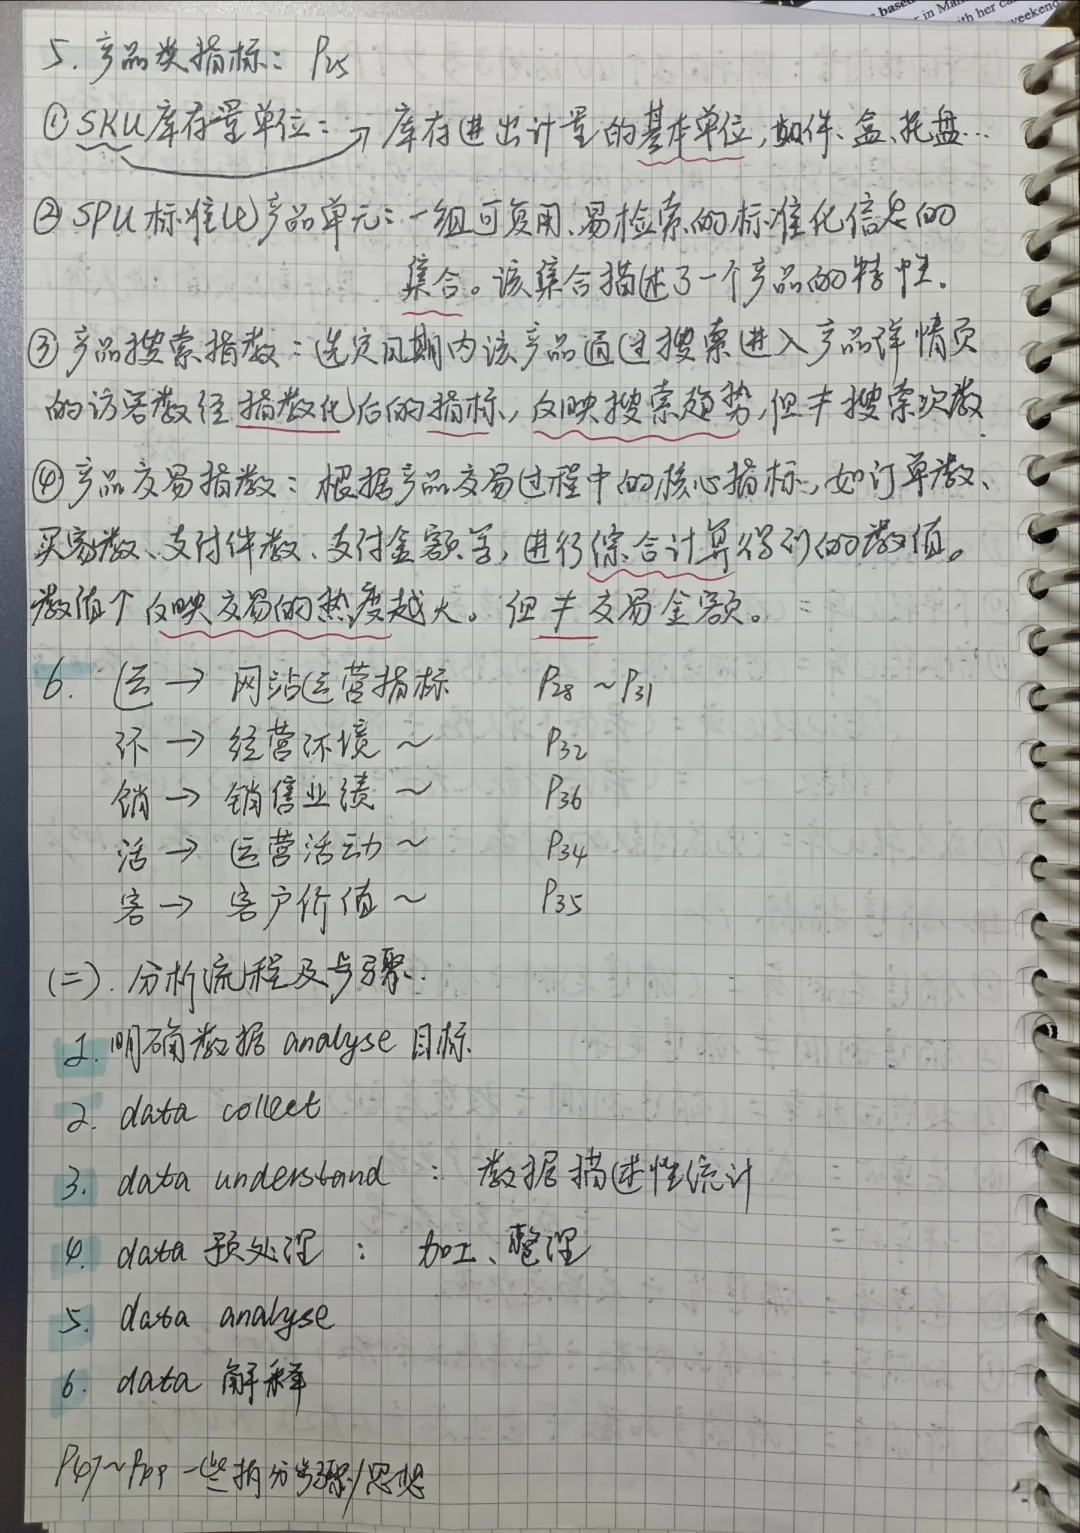 based
in Man
th her ca
weekend
5. 产品类指标: P25
① SKU库存量单位: → 库存进出计量的基本单位,如件、盒、托盘…
② SPU标准化产品单元: 一组可复用、易检索的标准化信息的
集合。该集合描述了一个产品的特性.
③ 产品搜索指数: 选定周期内该产品通过搜索进入产品详情页
的访客数经指数化后的指标,反映搜索趋势,但≠搜索次数
④ 产品交易指数: 根据产品交易过程中的核心指标,如订单数、
买家数、支付件数、支付金额等,进行综合计算得到的数值。
数值↑反映交易的热度越大。但≠交易金额。
6. 运 → 网站运营指标 P28 ~ P31
环 → 经营环境 ~ P32
销 → 销售业绩 ~ P36
活 → 运营活动 ~ P34
客 → 客户价值 ~ P35
(二). 分析流程及步骤.
1. 明确数据 analyse 目标.
2. data collect
3. data understand : 数据描述性统计
4. data 预处理 : 加工、整理
5. data analyse
6. data 解释
P47~ 一些拆分步骤/思想